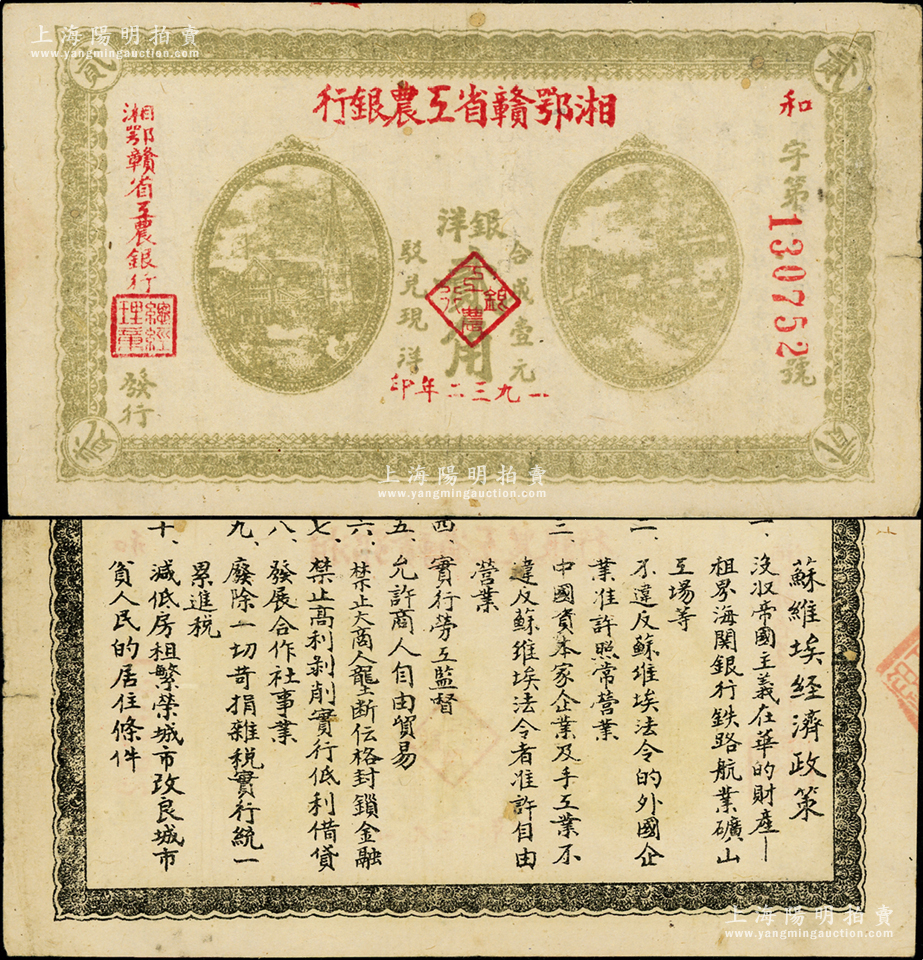 上海陽明拍賣
www.yangmingauction.com
湘鄂贛省工農銀行
和
字第
130752
號
銀洋
貳角
合成壹元
駁兑現洋
工農銀行
一九三二年印
湘鄂贛省工農銀行
總經理章
發行
貳
上海陽明拍賣
www.yangmingauction.com
蘇維埃經濟政策
一、沒收帝國主義在華的財產—
租界海関銀行鉄路航業礦山
工場等
二、不違反蘇維埃法令的外國企
業准許照常營業
三、中國資本家企業及手工業不
違反蘇維埃法令者准許自由
營業
四、實行勞工監督
五、允許商人自由貿易
六、禁止大商人壟断價格封鎖金融
七、禁止高利剥削實行低利借貸
八、發展合作社事業
九、廢除一切苛捐雜稅實行統一
累進稅
十、減低房租繁榮城市改良城市
貧人民的居住條件
上海陽明拍賣
www.yangmingauction.com